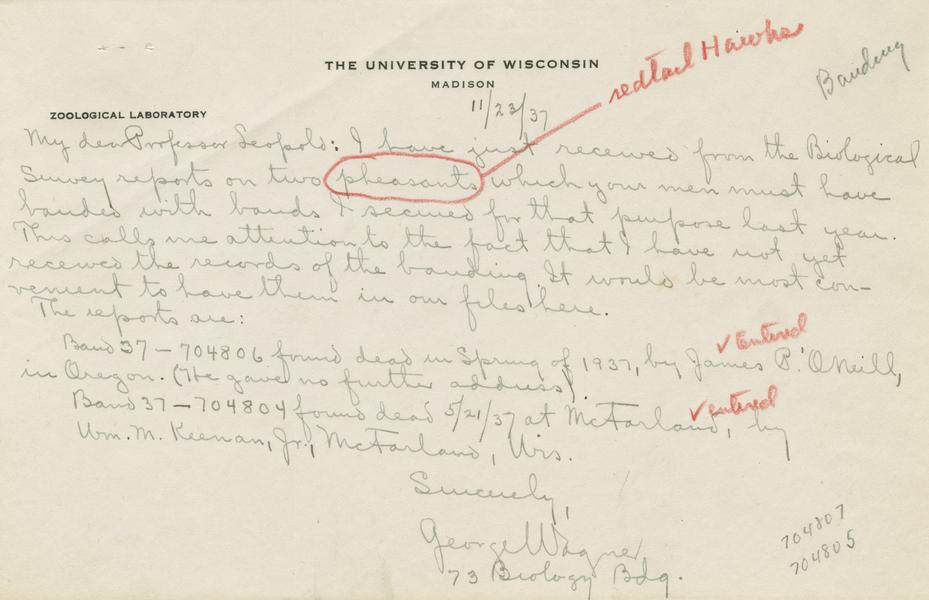 redtail Hawks
Banding
THE UNIVERSITY OF WISCONSIN
MADISON
ZOOLOGICAL LABORATORY
11/23/37
My dear Professor Leopold: I have just received from the Biological
Survey reports on two pheasants which your men must have
banded with bands I secured for that purpose last year.
This calls me attention to the fact that I have not yet
received the records of the banding. It would be most con-
venient to have them in our files here.
The reports are:
Band 37-704806 found dead in Spring of 1937, by James P. O'Neill,
✓ Entered
in Oregon. (He gave no further address).
Band 37-704804 found dead 5/21/37 at McFarland, by
✓ entered
Wm. M. Keenan, Jr., McFarland, Wis.
Sincerely,
George Wagner
73 Biology Bdg.
704807
704805